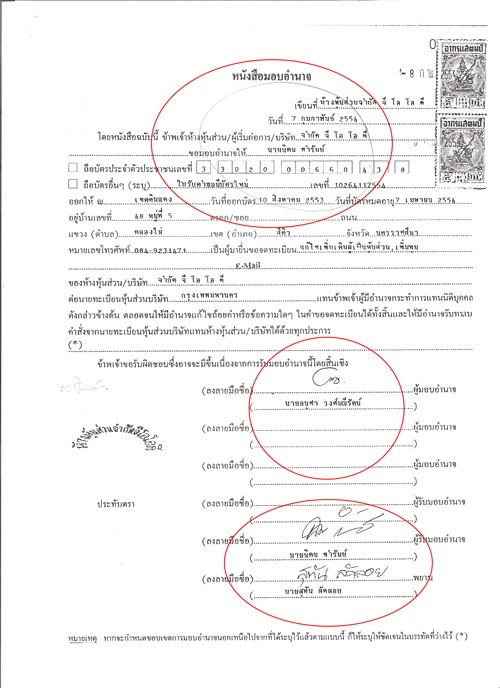 อากรแสตมป์
-8 ก.พ. 2554
หนังสือมอบอำนาจ
เขียนที่ ห้างหุ้นส่วนจำกัด จี โล โล ดี
วันที่ 7 กุมภาพันธ์ 2554
โดยหนังสือฉบับนี้ ข้าพเจ้าห้างหุ้นส่วน/ผู้เริ่มก่อการ/บริษัท จำกัด จี โล โล ดี
ขอมอบอำนาจให้
ถือบัตรประจำตัวประชาชนเลขที่ 3 3020 00660 43 8
ถือบัตรอื่นๆ (ระบุ) เลขที่
ออกให้ ณ วันที่ออกบัตร 10 สิงหาคม 2553 วันที่บัตรหมดอายุ 7 เมษายน 2554
อยู่บ้านเลขที่ 48 หมู่ที่ 5 ตรอก/ซอย ถนน
แขวง (ตำบล) คลองไผ่ เขต (อำเภอ) สีคิ้ว จังหวัด นครราชสีมา
หมายเลขโทรศัพท์ 084-9231471 เป็นผู้มายื่นขอจดทะเบียน
E-Mail
ของห้างหุ้นส่วน/บริษัท จำกัด จี โล โล ดี
ต่อนายทะเบียนหุ้นส่วนบริษัท กรุงเทพมหานคร แทนข้าพเจ้าผู้มีอำนาจกระทำการแทนนิติบุคคล
ดังกล่าวข้างต้น ตลอดจนให้มีอำนาจแก้ไขถ้อยคำหรือข้อความใดๆ ในคำขอจดทะเบียนได้ทั้งสิ้นและให้มีอำนาจรับทราบ
คำสั่งจากนายทะเบียนหุ้นส่วนบริษัทแทนห้างหุ้นส่วน/บริษัทได้ด้วยทุกประการ
(*)
ข้าพเจ้าขอรับผิดชอบซึ่งอาจจะมีขึ้นเนื่องจากการรับมอบอำนาจนี้โดยสิ้นเชิง
(ลงลายมือชื่อ) ผู้มอบอำนาจ
( นายอนุชา วงศ์มณีรัตน์ )
(ลงลายมือชื่อ) ผู้มอบอำนาจ
( )
(ลงลายมือชื่อ) ผู้มอบอำนาจ
( )
ประทับตรา (ลงลายมือชื่อ) ผู้รับมอบอำนาจ
( )
(ลงลายมือชื่อ) ผู้รับมอบอำนาจ
(ลงลายมือชื่อ) พยาน
หมายเหตุ หากจะกำหนดขอบเขตการมอบอำนาจนอกเหนือไปจากที่ได้ระบุไว้แล้วตามแบบนี้ ก็ให้ระบุให้ชัดเจนในบรรทัดที่ว่างไว้ (*)